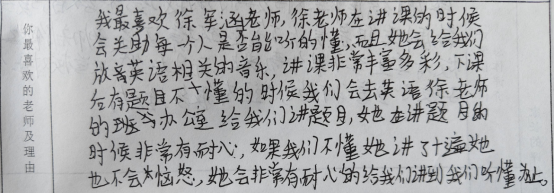 你最喜欢的老师及理由
我最喜欢徐军涵老师，徐老师在讲课的时候
会关助每一个人是否能听的懂，而且她会给我们
放英语相关的音乐，讲课非常丰富多彩，下课
后有题目不懂的时候我们会去英语徐老师
的办公室给我们讲题目，她在讲题目的
时候非常有耐心，如果我们不懂她讲了十遍她
也不会恼怒，她会非常有耐心的给我们讲到我们听懂为止。